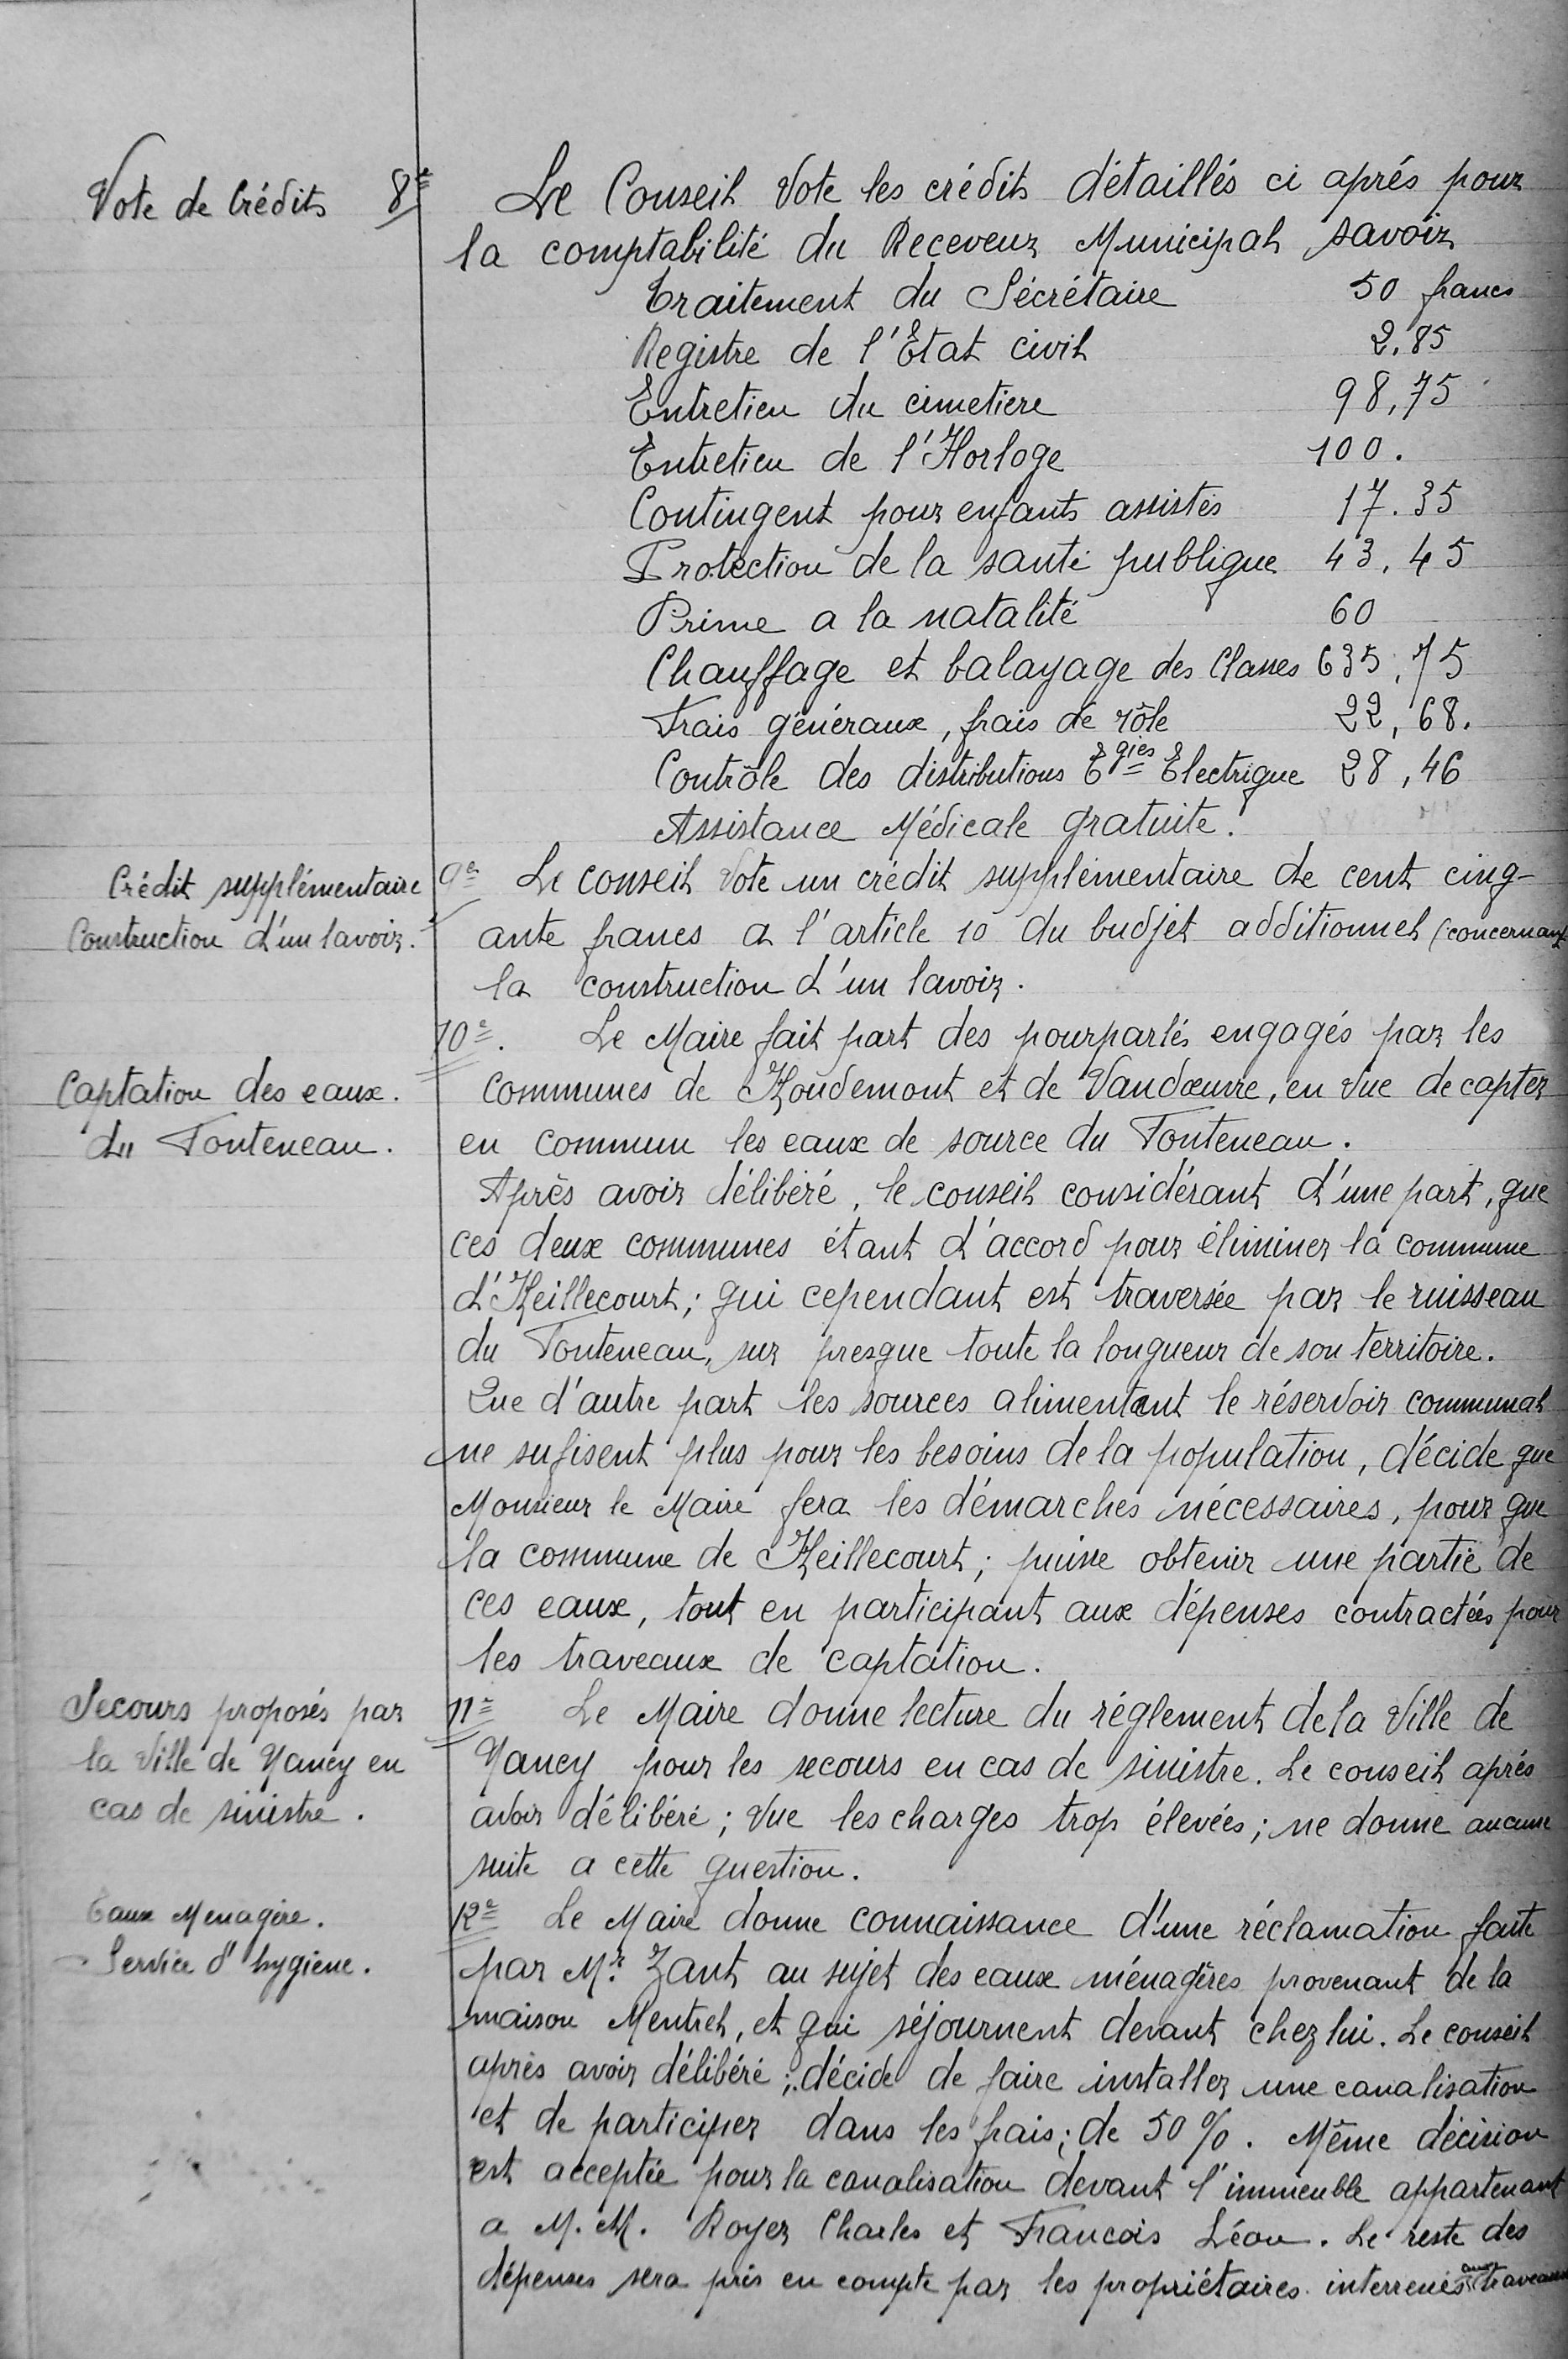 Vote de Crédits 8e Le Conseil Vote les crédits détaillés ci aprés pour
la comptabilité du Receveur Municipal savoir
Traitement du Sécrétaire 50 francs
Registre de l'Etat civil 2,85
Entretien du cimetiere 98,75
Entretien de l'Horloge 100.
Contingent pour enfants assistés 17.35
Protection de la santé publique 43,45
Prime a la natalité 60
Chauffage et balayage des Classes 635,75
Frais généraux, frais de rôle 22,68.
Contrôle des distributions Egies Electrique 28,46
Assistance Médicale gratuite.
Crédit supplémentaire
Construction d'un lavoir.
9e Le conseil Vote un crédit supplémentaire de cent cinq-
ante francs a l'article 10 du budjet additionnel (concernant
la construction d'un lavoir.
Captation des eaux.
du Fonteneau.
10e. Le Maire fait part des pourparlés engagés par les
communes de Houdemont et de Vandœuvre, en vue de capter
en commun les eaux de source du Fonteneau.
Après avoir délibéré, le conseil considérant d'une part, que
ces deux communes étant d'accord pour éliminer la commune
d'Heillecourt; qui cependant est traversée par le ruisseau
du Fonteneau, sur presque toute la longueur de son territoire.
Que d'autre part les sources alimentant le réservoir communal
ne sufisent plus pour les besoins de la population, décide que
Monsieur le Maire fera les démarches nécessaires, pour que
la commune de Heillecourt; puisse obtenir une partie de
ces eaux, tout en participant aux dépenses contractées pour
les traveaux de captation.
Secours proposés par
la Ville de Nancy en
cas de sinistre.
11e Le Maire donne lecture du réglement de la Ville de
Nancy pour les secours en cas de sinistre. Le conseil aprés
avoir délibéré; Vue les charges trop élevées; ne donne aucune
suite a cette question.
Eaux Menagère.
Service d'hygiene.
12e Le Maire donne connaissance d'une réclamation faite
par Mr. Zant au sujet des eaux ménagères provenant de la
maison Mentrel, et qui séjournent devant chez lui. Le conseil
après avoir délibéré; décide de faire installer une canalisation
et de participer dans les frais; de 50%. Même décision
est acceptée pour la canalisation devant l'immeuble appartenant
a M.M. Royer Charles et Francois Léon. Le reste des
dépenses sera pris en compte par les propriétaires interrenés aux traveaux